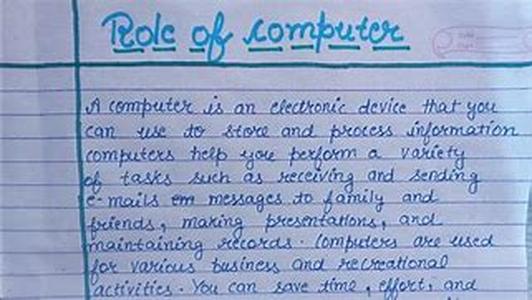 Role of computer
A computer is an electronic device that you
can use to store and process information
computers help you perform a variety
of tasks such as receiving and sending
e-mails messages to family and
friends, making presentations, and
maintaining records. Computers are used
for various business and recreational
activities. You can save time, effort, and